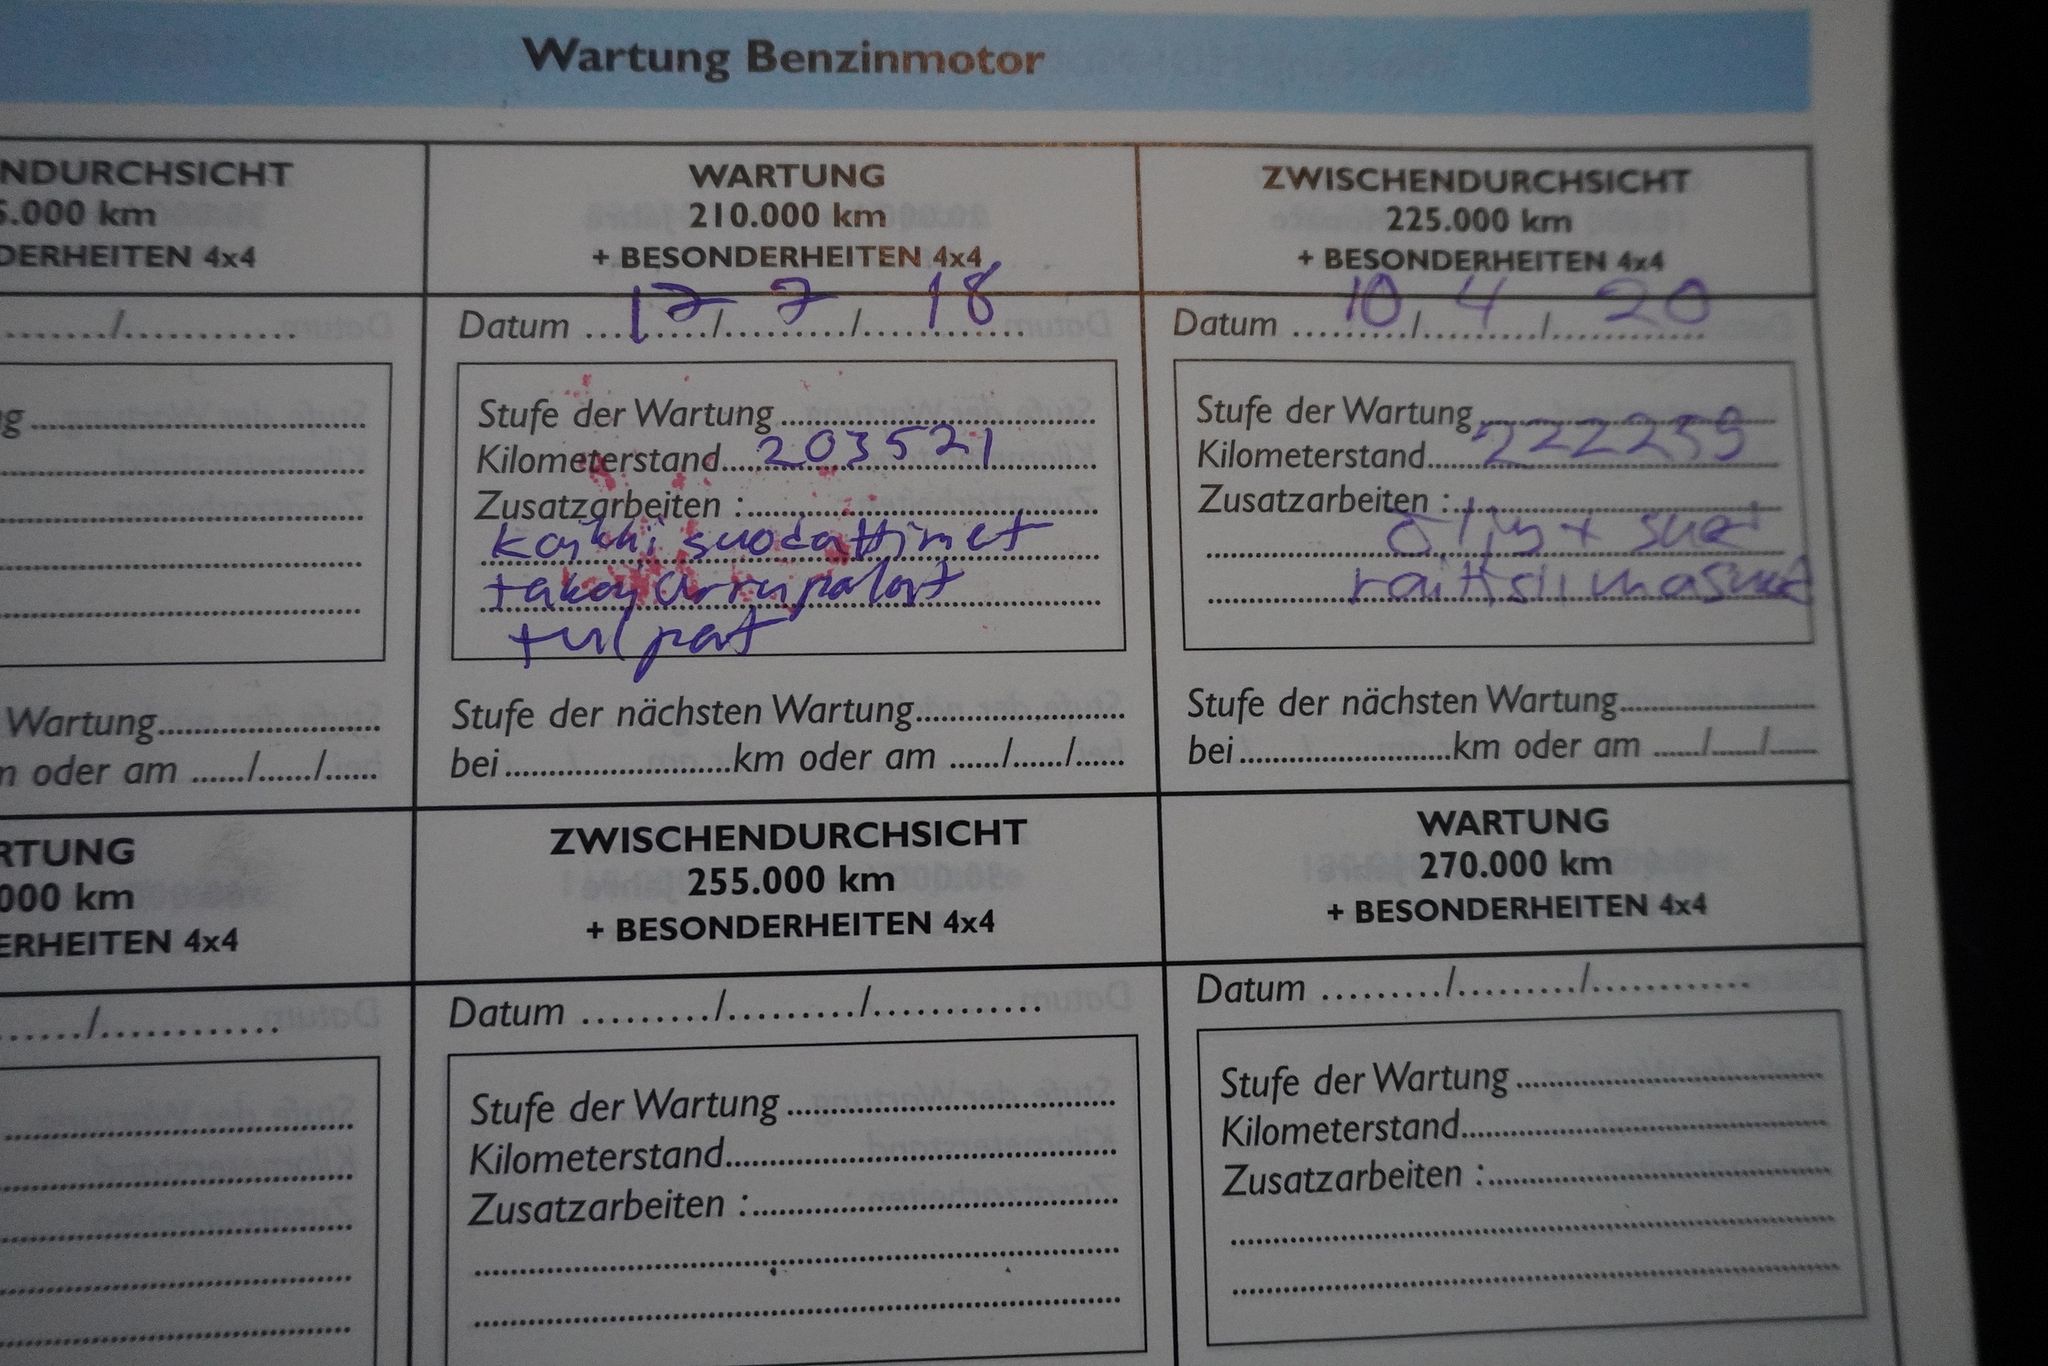 Wartung Benzinmotor
NDURCHSICHT
5.000 km
DERHEITEN 4x4
WARTUNG
210.000 km
+ BESONDERHEITEN 4x4
ZWISCHENDURCHSICHT
225.000 km
+ BESONDERHEITEN 4x4
......./............
Datum 17/7/18
Datum 10/4/20
g
Stufe der Wartung
Kilometerstand 203521
Zusatzarbeiten :
kaikki suodattimet
takajarrupalat
tulpat
Stufe der Wartung
Kilometerstand 222239
Zusatzarbeiten :
öljyt + suo
Wartung
n oder am ....../....../......
Stufe der nächsten Wartung
bei km oder am ....../....../......
Stufe der nächsten Wartung
bei km oder am ....../....../......
RTUNG
000 km
ERHEITEN 4x4
ZWISCHENDURCHSICHT
255.000 km
+ BESONDERHEITEN 4x4
WARTUNG
270.000 km
+ BESONDERHEITEN 4x4
....../............
Datum ........./........./............
Datum ........./........./............
Stufe der Wartung
Kilometerstand
Zusatzarbeiten :
Stufe der Wartung
Kilometerstand
Zusatzarbeiten :